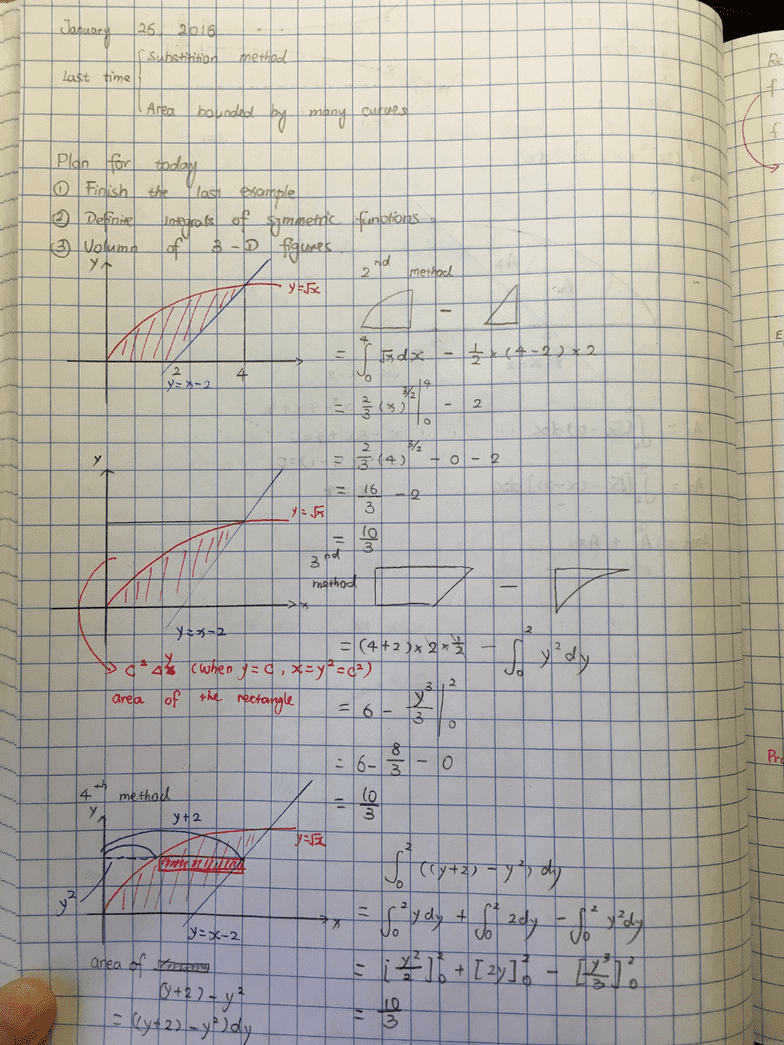 January 25, 2016
Last time { Substitition method
Area bounded by many curves
Plan for today
① Finish the last example
② Definite integrals of symmetric functions
③ Volumn of 3-D figures
y
y=√x
2
4
y=x-2
2nd method
-
= ∫₀⁴ √x dx - 1/2 × (4-2) × 2
= 2/3 (x)^3/2 |₀⁴ - 2
= 2/3 (4)^3/2 - 0 - 2
= 16/3 - 2
= 10/3
y
y=√x
x
y=x-2
C² Δy (when y=c, x=y²=c²)
area of the rectangle
3nd method
-
= (4+2)×2×1/2 - ∫₀² y²dy
= 6 - y³/3 |₀²
= 6 - 8/3 - 0
= 10/3
4th method
y
y+2
y=√x
y²
x
y=x-2
area of
(y+2)-y²
= ((y+2)-y²)dy
∫₀² ((y+2)-y²) dy
= ∫₀² ydy + ∫₀² 2dy - ∫₀² y²dy
= [y²/2]₀² + [2y]₀² - [y³/3]₀²
= 10/3